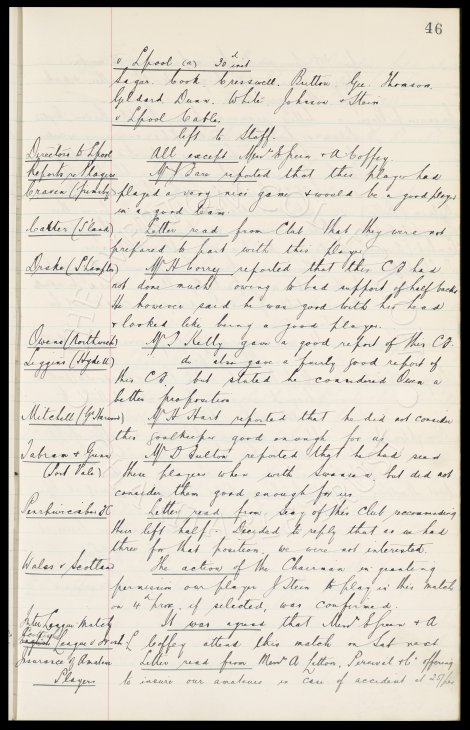 46
v Lpool (a) 30th inst
Sagar. Cook. Cresswell. Britton, Gee. Thomson.
Geldard. Dunn. White Johnson & Stein
v Lpool Cables.
left to Staff.
Directors to Lpool All except Messrs E Green & A Coffey
Reports re Players Mr J Baro reported that this player had
Craven played a very nice game & would be a good player
in a good team.
(S'land) Letter read from Club that they were not
prepared to part with this player
Drake (S'hampton) Mr H Corry reported that this C.F. had
not done much owing to bad support of half backs
He however said he was good with his head
& looked like being a good player.
Owens (Northwich) Mr T Kelly gave a good report of this C.F.
Liggins (Hyde U) do also gave a fairly good report of
this C.F. but stated he considered Owen a
better proposition
Mitchell (Gt Harwood) Mr H Hart reported that he did not consider
this goalkeeper good enough for us
Jabran & Gunn Mr D Fulton reported that he had seen
(Port Vale) these players when with Swansea but did not
consider them good enough for us.
Letter read from Secy of this Club recommending
their left half - Decided to reply that as we had
three for that position, we were not interested.
Wales v Scotland The action of the Chairman in granting
permission our player J Stein to play in this match
on 4th prox, if selected, was confirmed.
Inter League Match It was agreed that Messrs E Green & A
League v Irish L. Coffey attend this match on Sat next
Insurance of Amateur Letter read from Messrs A Litton, Percival & Co offering
Players to insure our amateurs in case of accident at 25/per